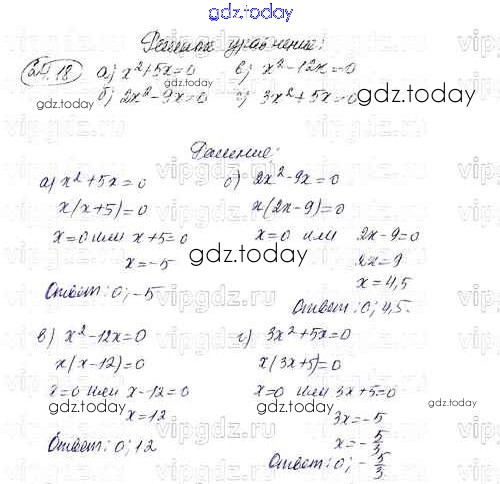 gdz.today
Решить уравнение:
24.18 а) x²+5x=0 в) x²-12x=0
б) 2x²-9x=0 г) 3x²+5x=0
gdz.today gdz.today gdz.today
Решение:
а) x²+5x=0
x(x+5)=0
x=0 или x+5=0
x=-5
Ответ: 0; -5
б) 2x²-9x=0
x(2x-9)=0
x=0 или 2x-9=0
2x=9
x=4,5
Ответ: 0; 4,5.
gdz.today
gdz.today
в) x²-12x=0
x(x-12)=0
x=0 или x-12=0
x=12
Ответ: 0; 12
г) 3x²+5x=0
x(3x+5)=0
x=0 или 3x+5=0
3x=-5
x=-5/3
Ответ: 0; -5/3
gdz.today
gdz.today
gdz.today
gdz.today
vipgdz.ru vipgdz.ru vipgdz.ru